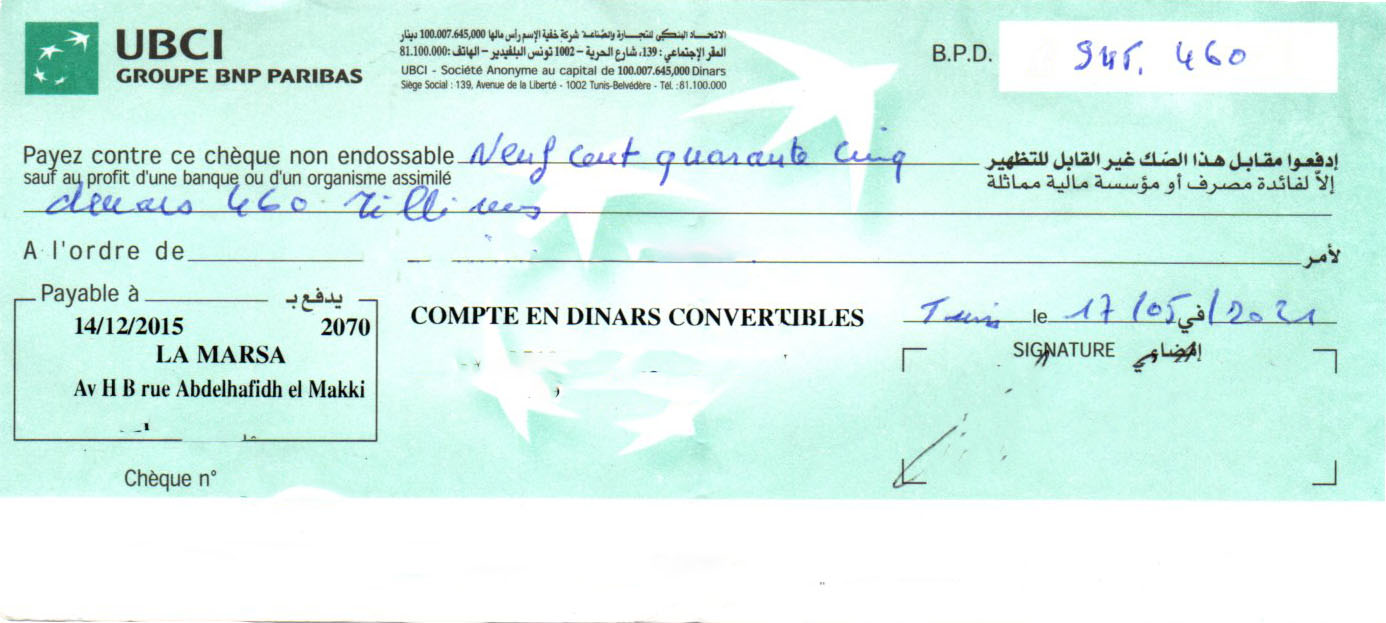 UBCI
GROUPE BNP PARIBAS
الاتحاد البنكي للتجارة والصناعة شركة خفية الإسم رأس مالها 100.007.645,000 دينار
المقر الإجتماعي : 139، شارع الحرية – 1002 تونس البلفيدير – الهاتف: 81.100.000
UBCI - Société Anonyme au capital de 100.007.645,000 Dinars
Siège Social : 139, Avenue de la Liberté - 1002 Tunis-Belvédère - Tél. :81.100.000
B.P.D. 945, 460
Payez contre ce chèque non endossable Neuf cent quarante cinq إدفعوا مقابل هذا الصّك غير القابل للتظهير
sauf au profit d'une banque ou d'un organisme assimilé إلاّ لفائدة مصرف أو مؤسسة مالية مماثلة
dinars 460 Millimes
A l'ordre de لأمر
Payable à يدفع بـ
14/12/2015 2070
LA MARSA
Av H B rue Abdelhafidh el Makki
COMPTE EN DINARS CONVERTIBLES
Tunis le 17/05 في/2021
SIGNATURE إمضاء
Chèque n°